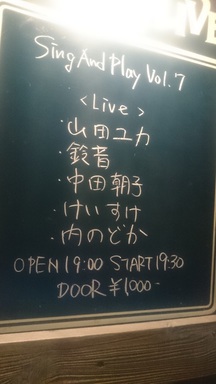 Sing And Play Vol.7
<Live>
・山田ユカ
・鈴音
・中田朝子
・けいすけ
・内のどか
OPEN 19:00 START 19:30
DOOR ¥1000-